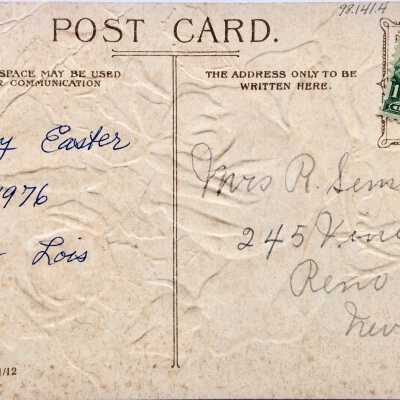 98.141.4
POST CARD.
SPACE MAY BE USED
COMMUNICATION
THE ADDRESS ONLY TO BE
WRITTEN HERE.
Easter
1976
Lois
Mrs R.
245
Reno
1/12